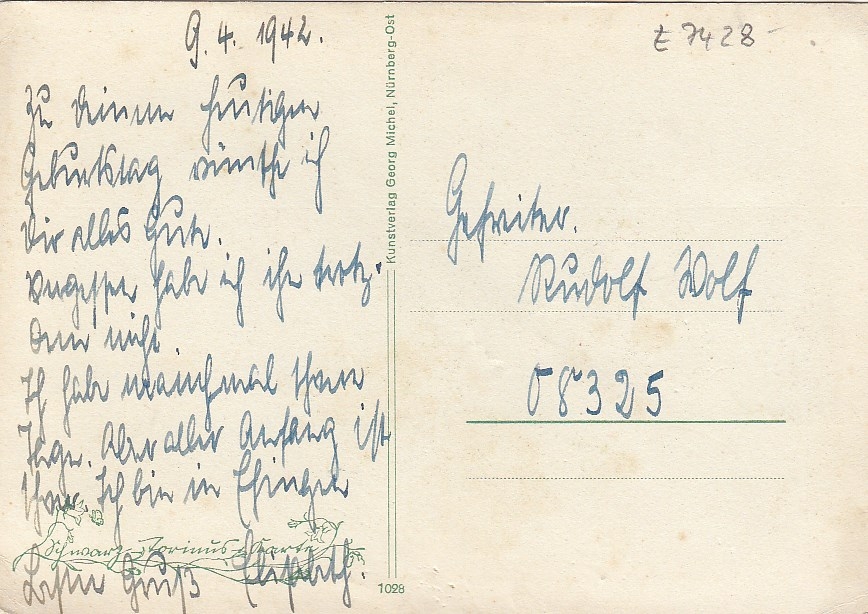 9. 4. 1942.
Zu Deinem heutigen
Geburtstag wünsche ich
Dir alles Gute.
Vergessen habe ich ihn trotz-
dem nicht.
Ich habe manchmal schwere
Tage. Aber aller Anfang ist
schwer. Ich bin in
Schwarz-Torinus-Karte
Gruß Elisabeth.
Kunstverlag Georg Michel, Nürnberg-Ost
1028
7428
Gefreiter.
Rudolf Wolf
08325